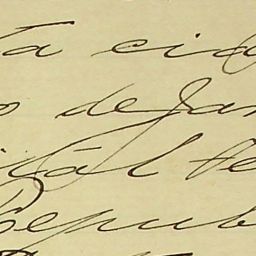 ta cida
o de Jan
ital Fe
Repub